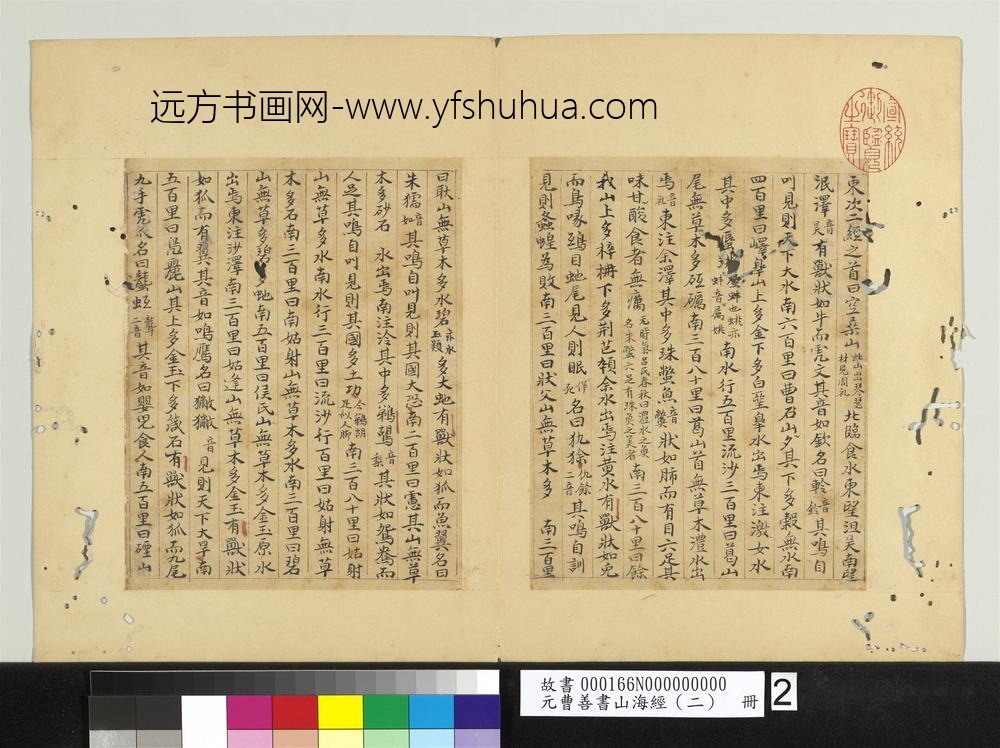 远方书画网-www.yfshuhua.com
東次二經之首曰空桑山此山出琴瑟材見周礼北臨食水東望沮吳南望
泯澤音旻有獸狀如牛而虎文其音如欽名曰軨音鈴其鳴自
叫見則天下大水南六百里曰曹夕山其下多穀無水南
四百里曰嶧皋山上多金下多白堊皋水出焉東注激女水
其中多蜃蜃蚌也姚亦蚌音属姚南水行五百里流沙三百里曰葛山
尾無草木多砥礪南三百八十里曰葛山首無草木澧水出
焉音礼東注余澤其中多珠蟞魚音鱉狀如肺而有目六足其
味甘酸食者無癘无時氣呂氏春秋曰澧水之魚名朱蟞六足有珠魚之美者南三百八十里曰餘
我山上多梓枬下多荊芑余水出焉注黃水有獸狀如兎
而鳥喙鴟目虵尾見人則眠佯死名曰犰狳仇餘二音其鳴自訓
見則螽蝗為敗南三百里曰狀父山無草木多 南三百里
曰耿山無草木多水碧亦水玉類多大虵有獸狀如狐而魚翼名曰
朱獳音如其鳴自叫見則其國大恐南二百里曰盧其山無草
木多砂石 水出焉南注泠其中多鵹鶘音黎其狀如鴛鴦而
人足其鳴自叫見則其國多土功今鵜胡足似人脚南三百八十里曰姑射
山無草多水南水行三百里曰流沙行百里曰姑射無草
木多石南三百里曰南姑射山無草木多水南三百里曰碧
山無草多碧多虵南五百里曰侯氏山無草木多金玉原水
出焉東注沙澤南三百里曰姑逢山無草木多金玉有獸狀
如狐而有翼其音如鳴鴈名曰獙獙音見則天下大旱南
五百里曰鳧麗山其上多金玉下多箴石有獸狀如狐而九尾
九手虎爪名曰蠪蛭聾二音其音如嬰兒食人南五百里曰硜山
宣統御覽之寶
故書 000166N000000000
元曹善書山海經(二) 冊
2